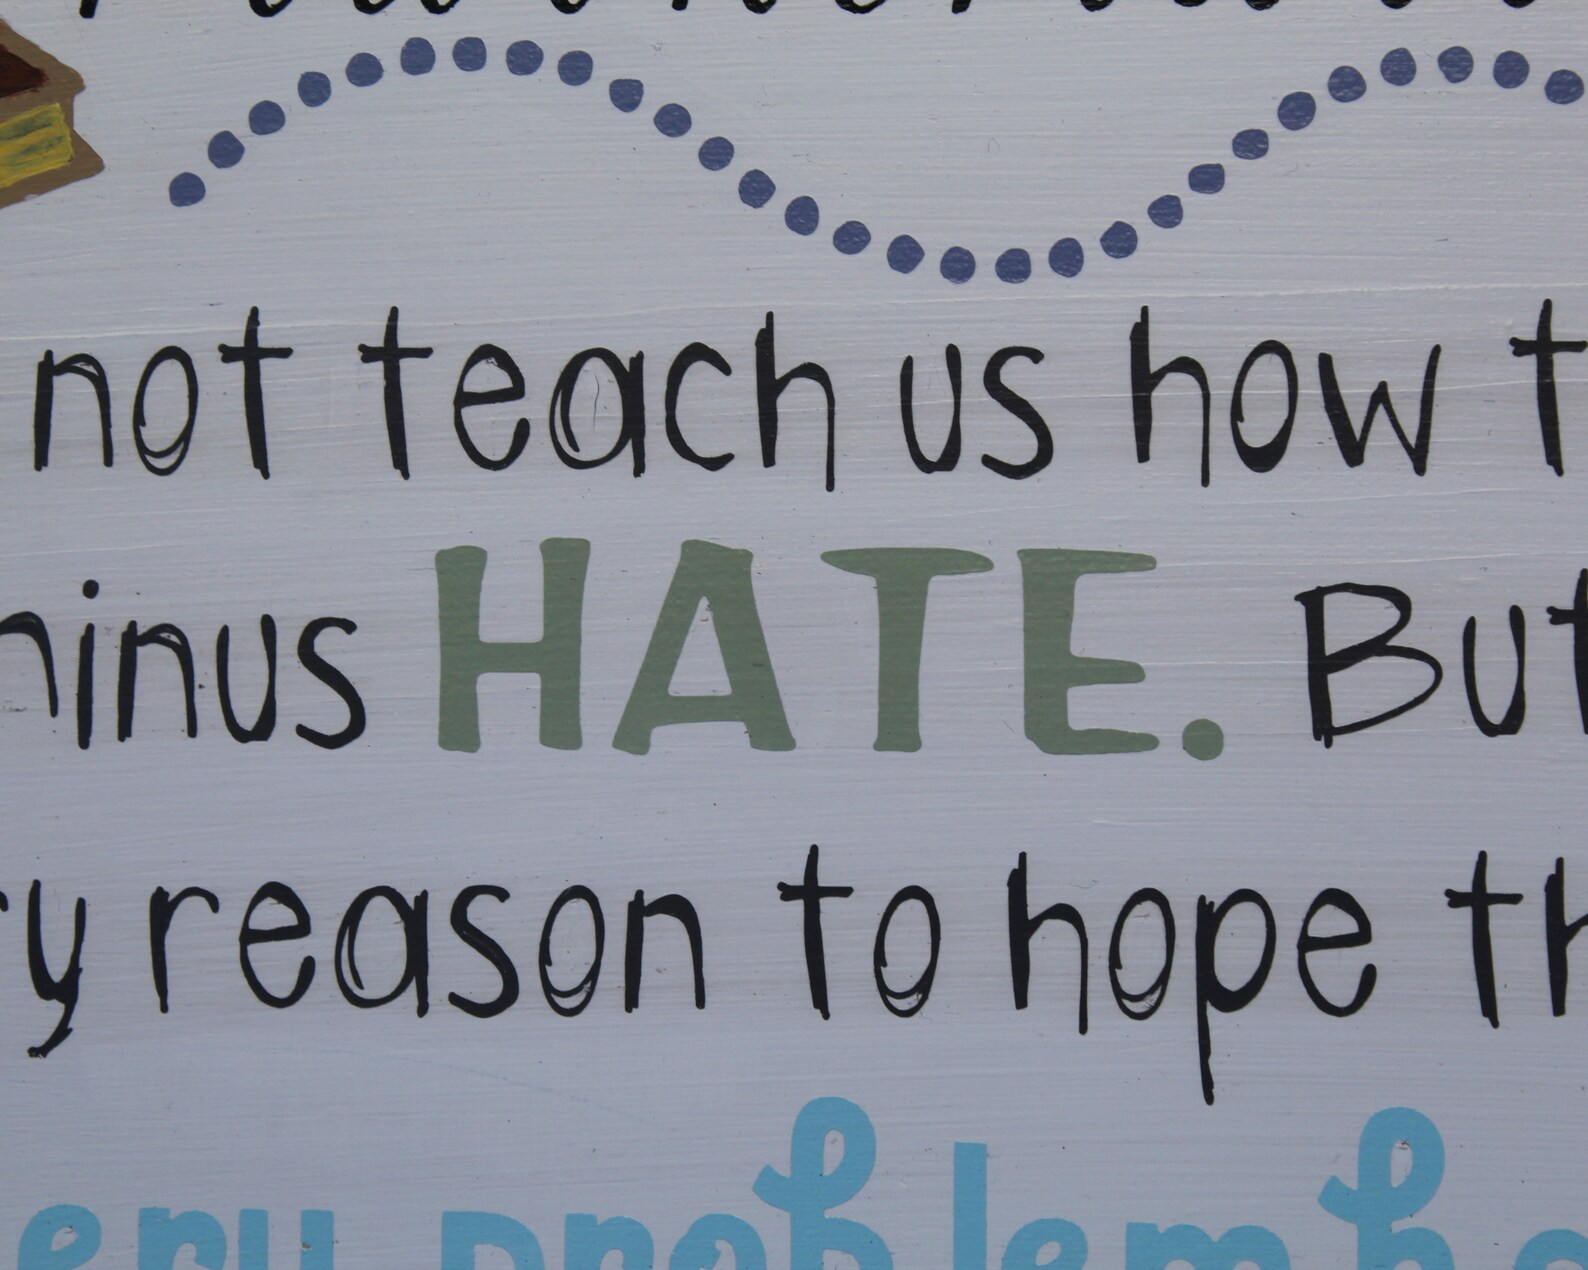 not teach us how t
minus HATE. But
ry reason to hope th
ery problem h